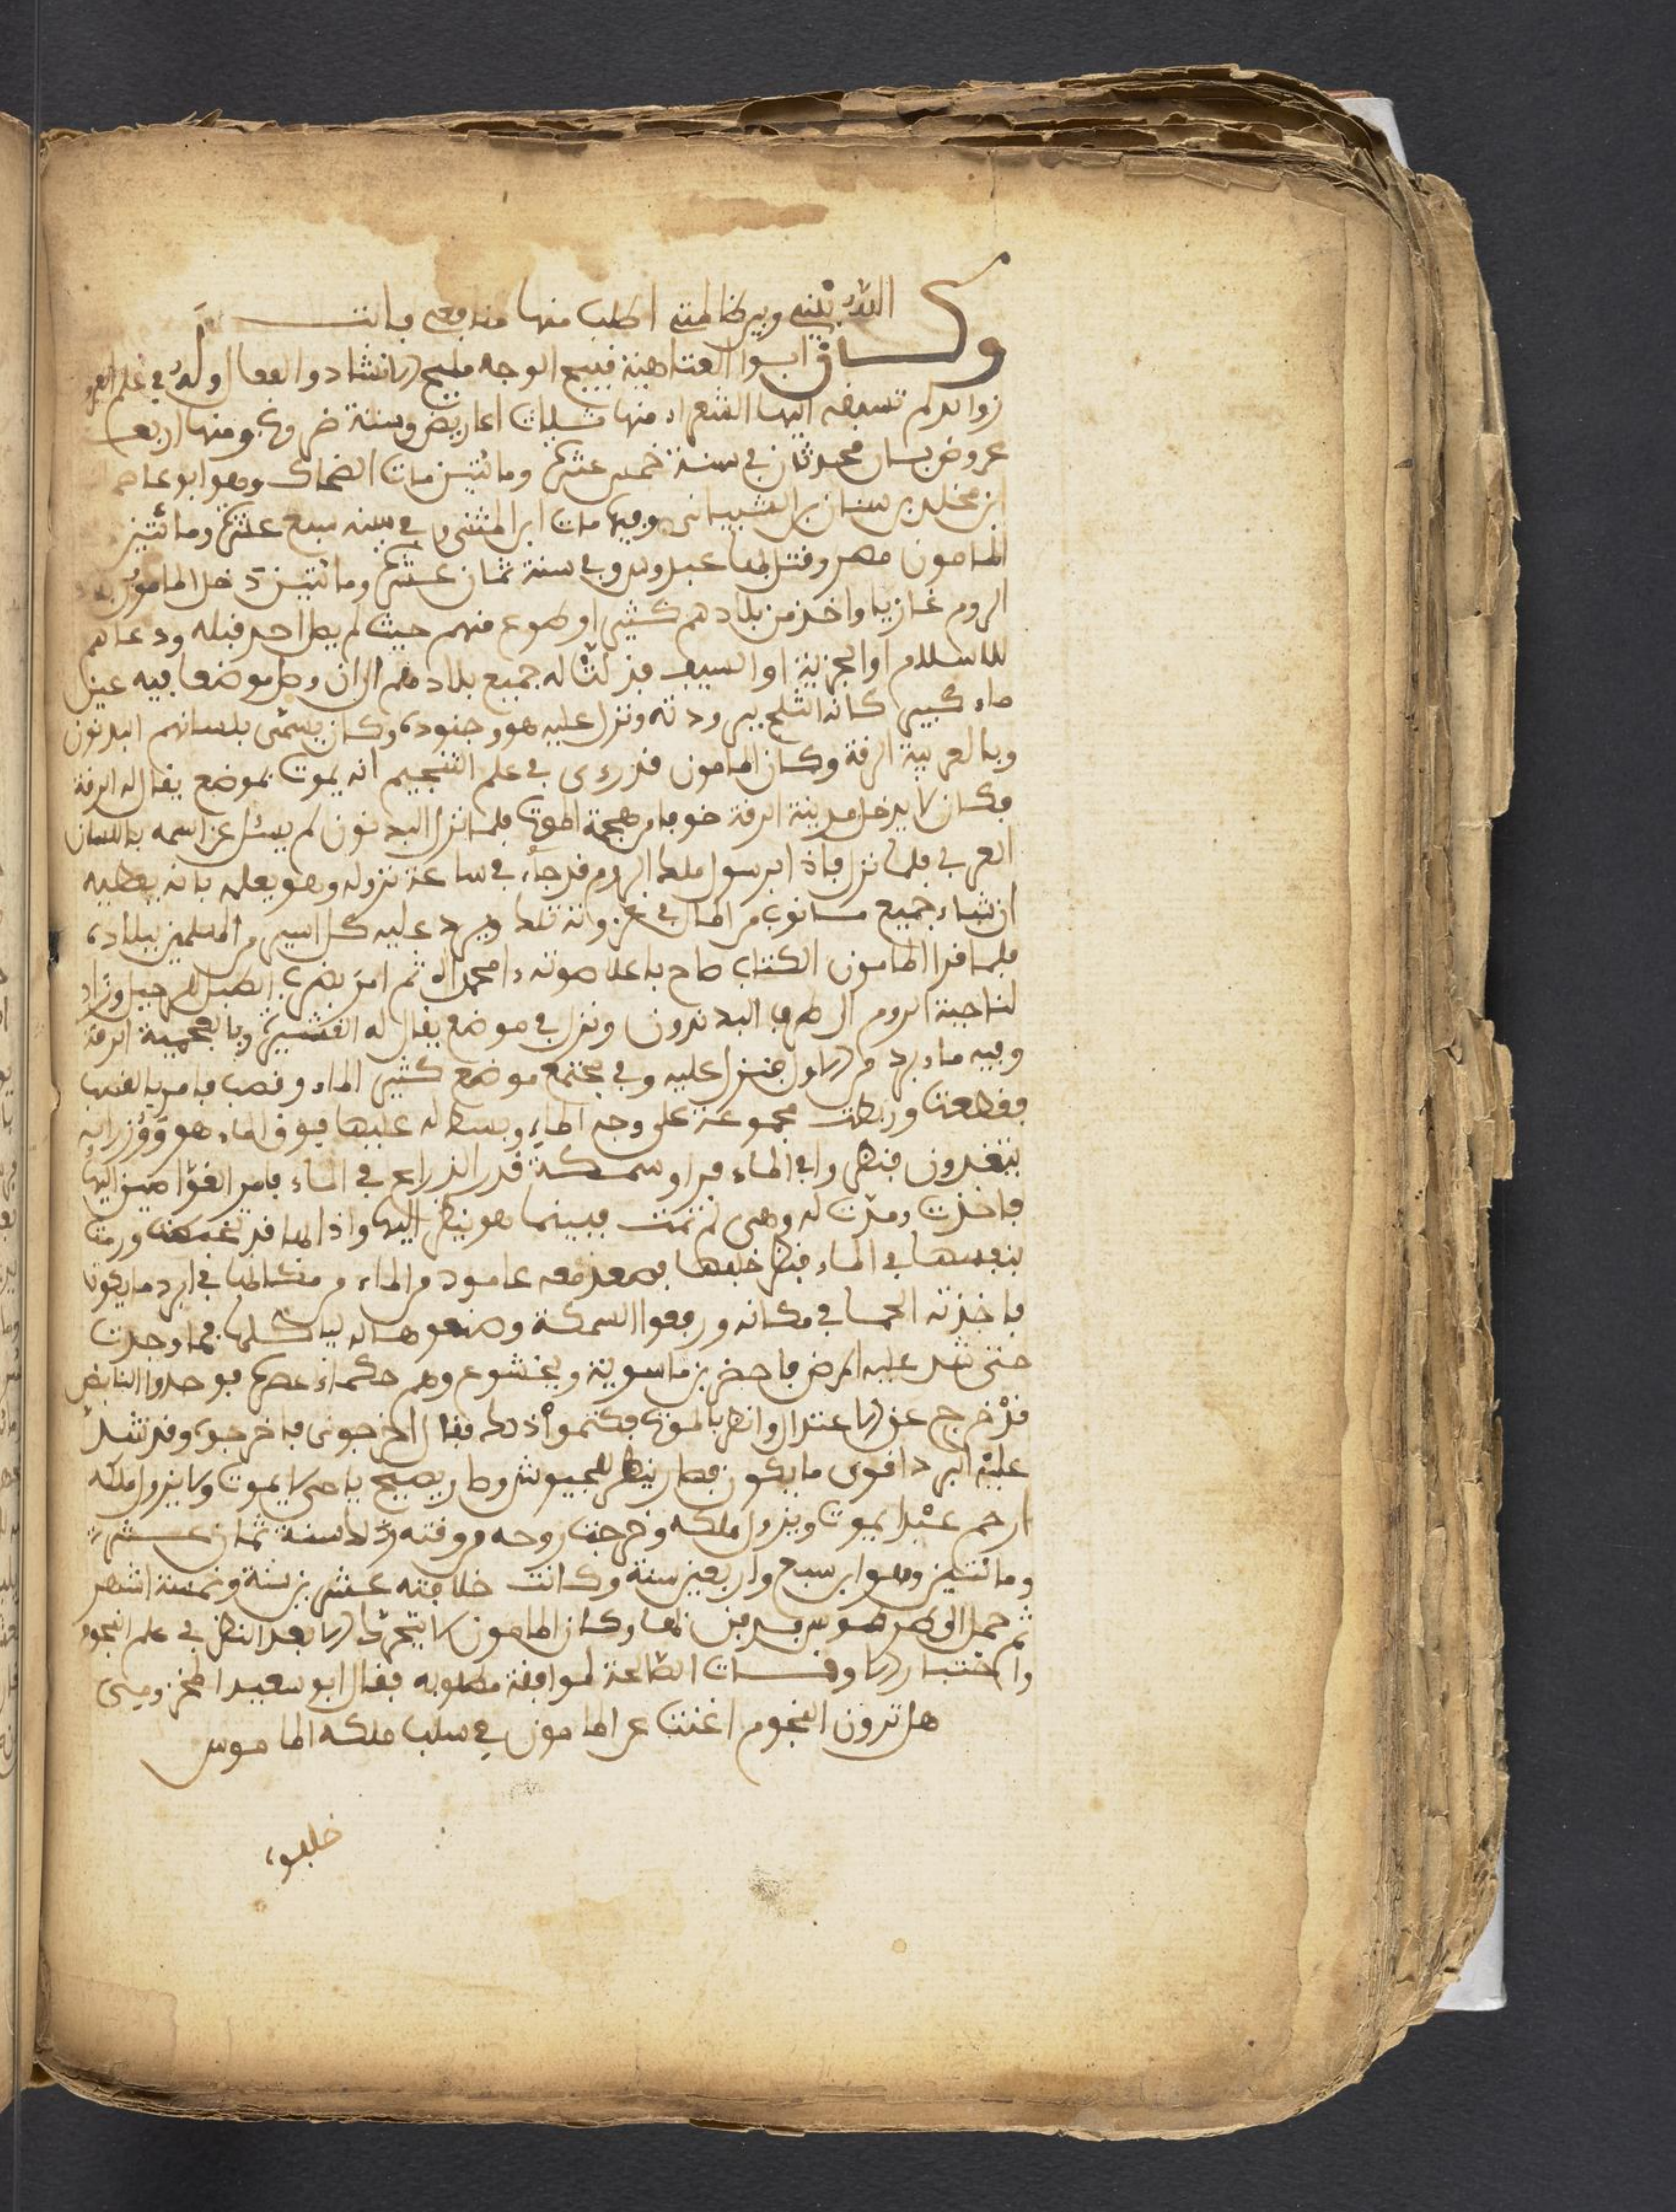 الله بيني وبين ظالمتي اطلب منها منافع فابت
وكان ابوا العتاهية قبيح الوجه مليح الانشاد والفعال وله في علم العرو
زوائد لم تسبقه اليها الشعراء منها ثلاث اعاريض وستة ضروب ومنها اربعة
عروض بسان محدثان في سنة خمس عشر ومائتين مات الضحاك وهو ابو عاصم
ابن مخلد بن سنان الشيباني وفيها مات ابن المثنى وفي سنة سبع عشر ومائتين
المامون مصر وقتل بها عبدوس وفي سنة ثمان عشر ومائتين دخل المامون
الروم غازيا واخذ من بلادهم كثير اوطوع منهم حيث لم يصل احد قبله ودعاهم
للاسلام او الجزية او السيف فذلت له جميع بلاد الى ان وصل موضعا فيه عين
ماء كبير كانه الثلج برودته ونزل عليه هو وجنوده وكان يسمى بلسانهم البدنون
وبالعربية الرقة وكان المامون قد روى في علم التنجيم انه يموت بموضع يقال له الرقة
فكان لا يدخل مدينة الرقة خوفا من هجمة الموت فلما نزل البدنون لم يسئل عن اسمه باللسان
العربي فلما نزل فاذا برسول ملك الروم قد جاء في ساعة نزوله وهو يعلمه بانه يعطيه
ان شاء جميع ما نوى من المال في غزوته تلك ويرد عليه كل اسير من المسلمين ببلاده
فلما قرا المامون الكتاب صاح باعلا صوته وامحمداه ثم امر بضرب الطبل للرحيل وزاد
لناحية الروم الى طرف البدندون ونزل في موضع يقال له القشيرة وبالعجمية الرقة
وفيه ماء برد من الاول فنزل عليه وفي مجتمع موضع كثير الماء وقصب فامر بالقصب
فقطعت وربطت مجموعة على وجه الماء وبسط له عليها فوق الماء هو ووزرايه
يتغدون فنظروا في الماء فراو سمكة قدر الذراع في الماء فامر الغواصين اليها
فاخذت ومدت له وهي لم تمت فبينما هو ينظر اليها واذا بها قد ورمت
بنفسها في الماء فنظر خلفها فصعد معه عامود من الماء في ابرد ما يكون
فاخذته الحما في مكانه ورفعوا السمكة وصنعوها له لياكلها فما وجدت
حتى شد عليه المرض فاحضر بن ماسوية وبخشوع وهم حكماء عصره فوجدوا النابض
قد خرج عن الاعتدال وانظر بالموت فكتموا ذلك فقال اخرجوني فاخرجوه وقد شد
عليه البرد اقوى ما يكون فصار ينظر للجيوش وصار يصيح يا من لا يموت ولا يزول ملكه
ارحم عبدا يموت ويزول ملكه وخرجت روحه من وقته وذلك سنة ثمان عشر
ومائتين وهو ابن سبع واربعين سنة وكانت خلافته عشرين سنة وخمسة اشهر
ثم حمل الى طرسوس فدفن بها وكان المامون لا يتحرك الا بعد النظر في علم النجوم
واختيار الاوقات الطالعة لموافقة مطلوبه فقال ابو سعيد المخزومى
هل ترون النجوم اغنت عن المامون في سلب ملكه الماموس
خلفوه